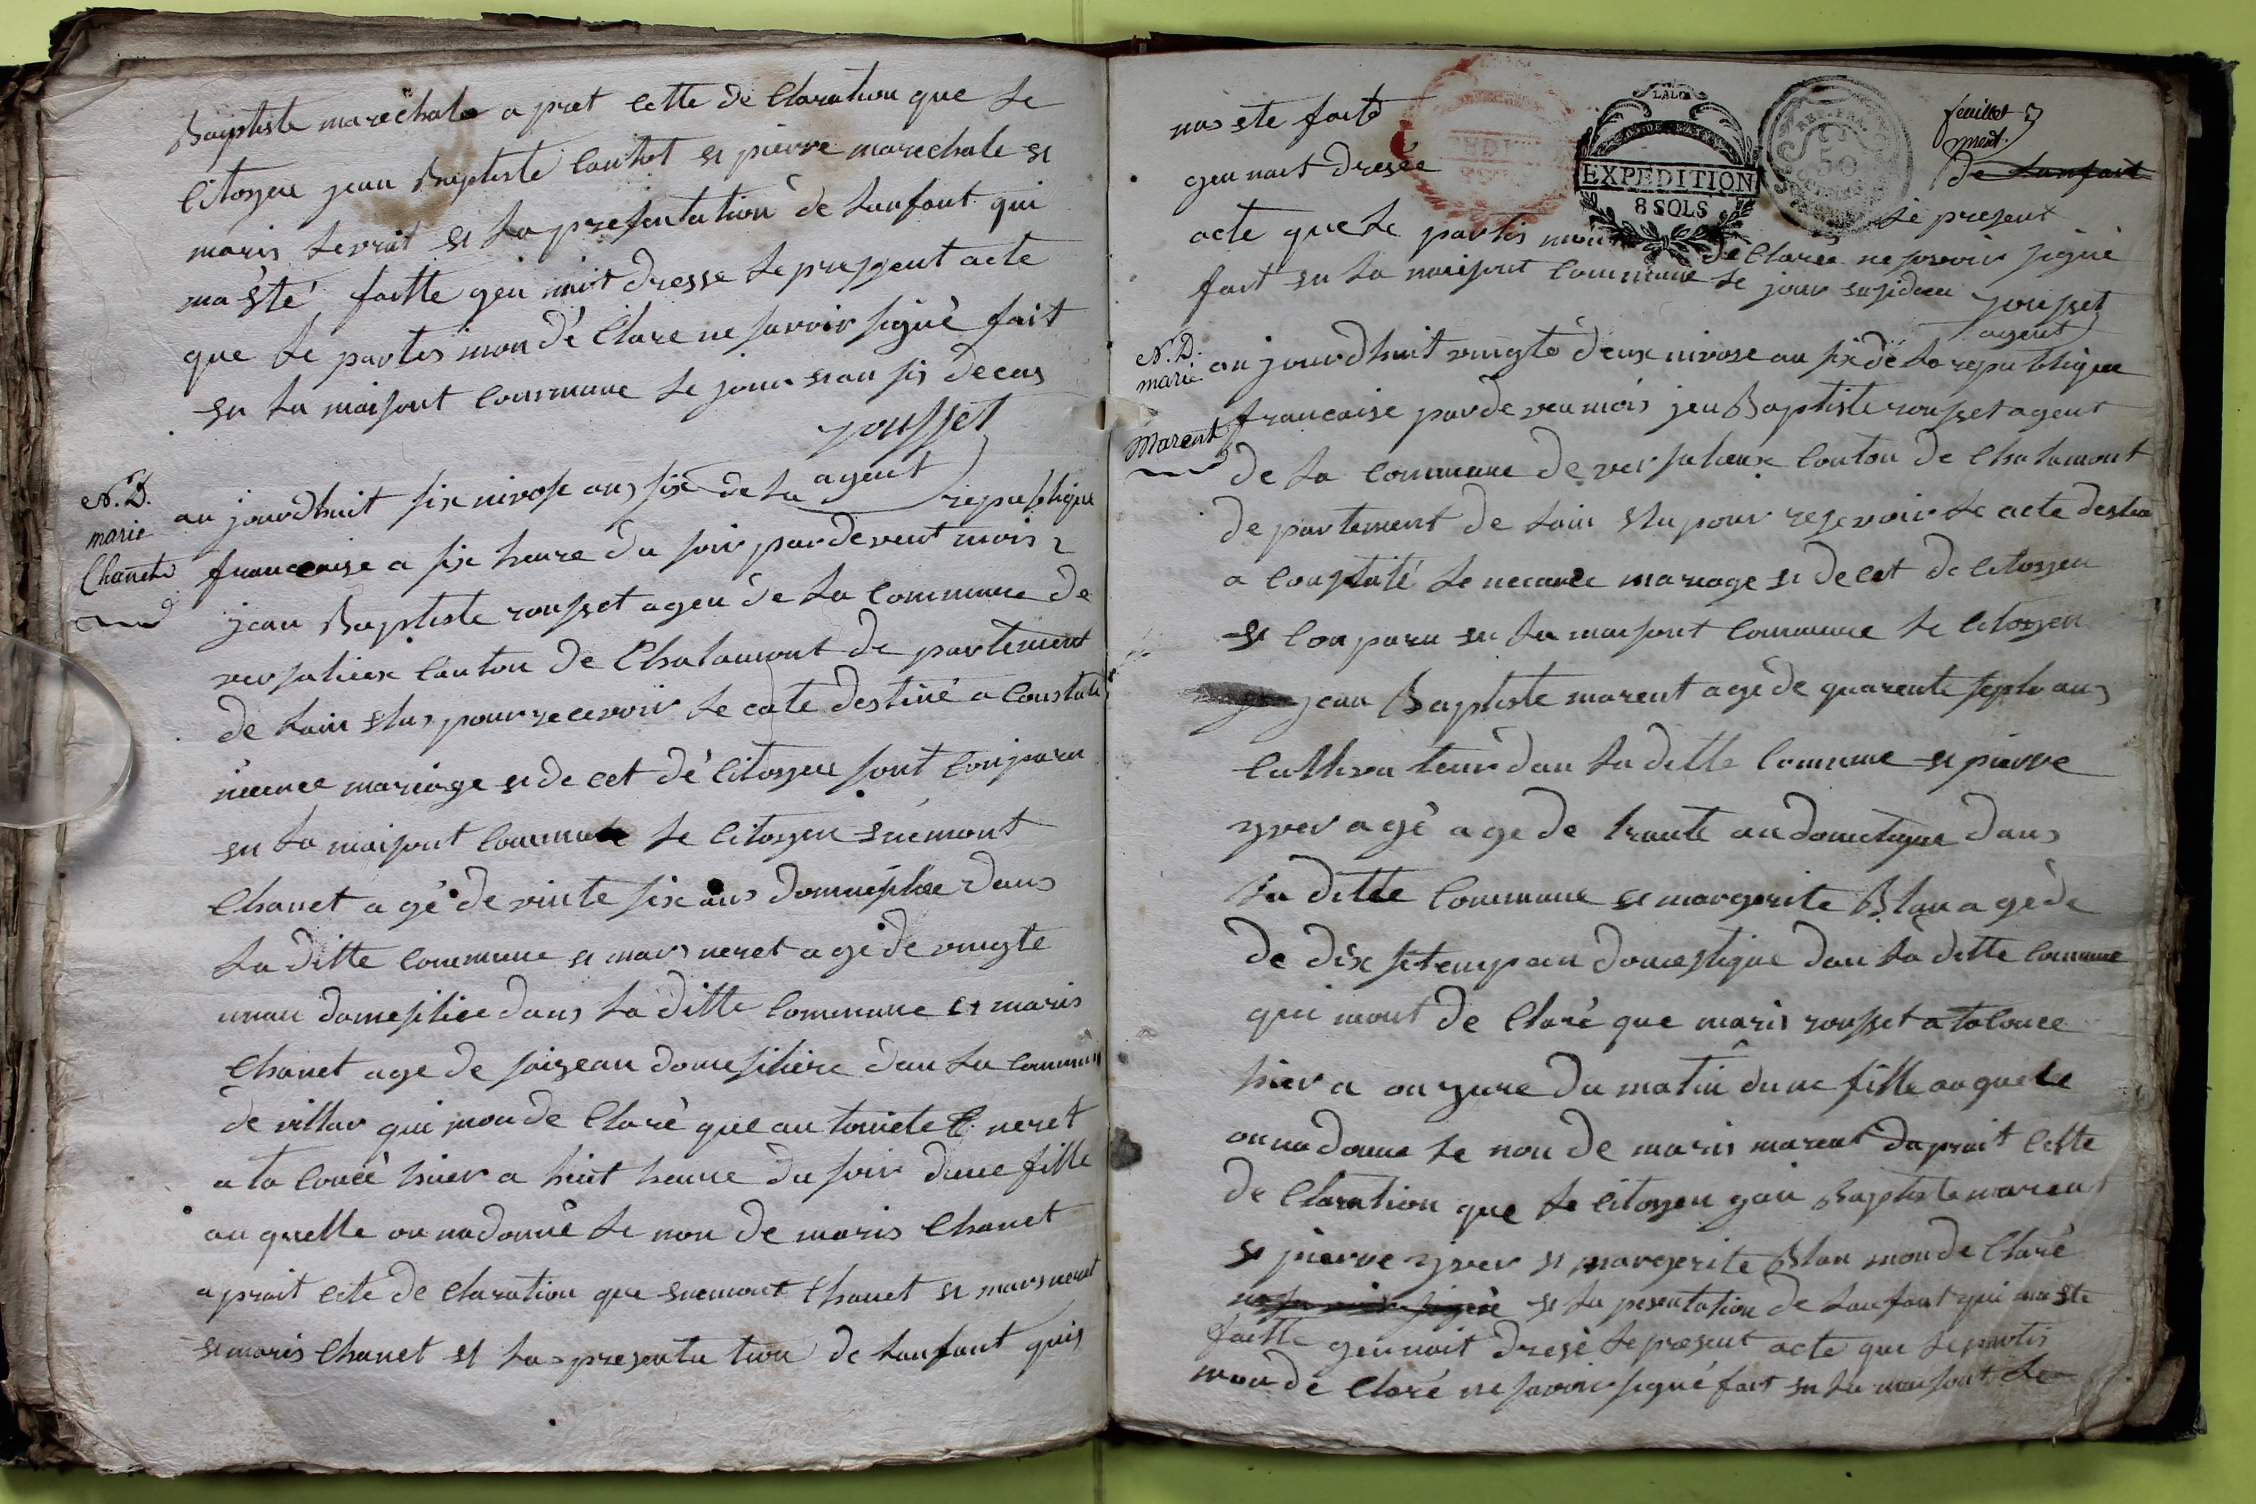 Baptiste marechale a pret cette de Claration que le
Citoyen jean Baptiste Contot et pierre marechale et
maris levrat et la presentation de lanfant qui
ma été faitte geu nait dresse le present acte
que le partis mon dé Clare ne savoir signè fait
en la maisont Commune le jour et an sis decus
rousset
agent
N. D.
marie
Chanet
au jourdhuit six nivose ans six de la republique
francaise a six heure du soir par devent mois
jean Baptiste rousset agen de la Commune de
versalieux Canton de Chalamont de partement
de lain elus pour recevoir le cate destiné a Constaté
nèence mariage et de cet dé Citoyen sont Conparu
en la maisont Commune le Citoyen enémont
Chanet a gé de vinte six ans domisiliee dans
la ditte Commune et mars neret a gé de vingte
unan domesiliee dans la ditte Commune et maris
Chanet age de saizean domesiliere dan la commun
de villar qui mon de Claré que an toniete neret
a la Coueé hier a huit heure du soir dune fille
au quelle on na donné le non de maris Chanet
a prait cete de Claration que enemont Chanet et mars neret
et maris Chanet et la presenta tion de lanfant quis
feuillet 3
ment.
mas ete faite de lanfant
geu nait dresée le present
acte que le partis mon de Clarée ne savoir signé
fait en la maisont Commune le jour en sideau
rousset
agent
EXPEDITION
8 SOLS
50
N. D.
marie
Marent
au jourdhuit vingte deux nivose an six de la republique
francaise par de van mois jeu Baptiste rousset agent
de la Commune de versalieux Conton de Chalamont
de partement de lain elu pour resevoir le acte destin
a Constaté le necance mariage et decet de Citoyen
et Conparu en la maisont Commune le Citoyen
jean Baptiste marent a gé de quarente septe ans
Culltiva teur dan la ditte Commune et pierre
yver a gé a ge de trante an domestique dans
la ditte Commune et margerite Blan a gé de
de dix sete en domestique dan la ditte Commune
qui mont de Claré que maris rousset a la Couee
hier a on zeure du matin dune fille au quele
on na donne le non de maris marent da prait Cette
de Claration que le Citoyen gan Baptiste marent
et pierre yver et margerite Blan mon de Claré
ne savoir signé et la presentation de lanfant qui ma ete
faitte geu nait dresé le present acte que le partis
mon de Claré ne savoir signé fait en la maisont Le